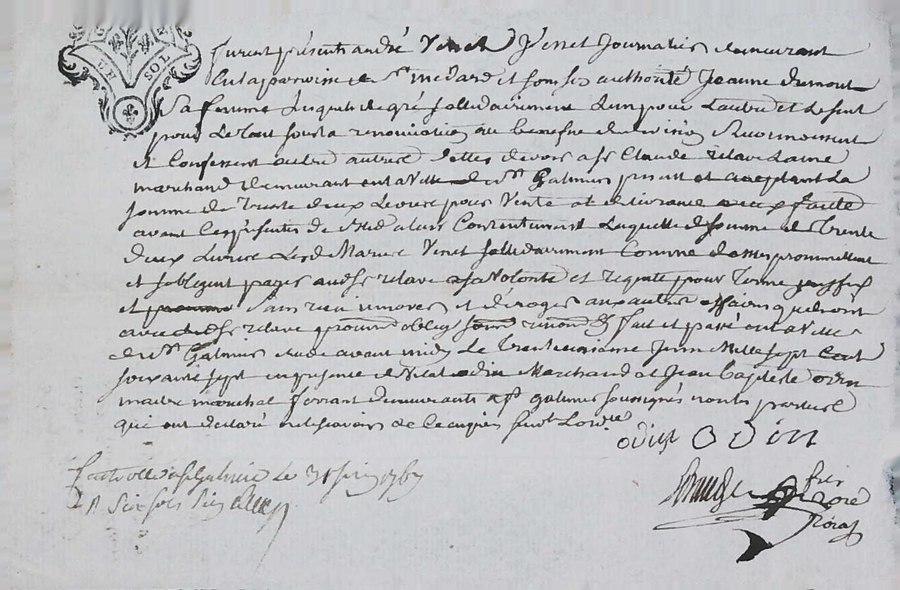 UN SOL
furent présents andré Venet Venet Journalier demeurant
En la parroisse de St medard et sous son authorité Jeanne dumont
Sa femme Lesquels de gré sollidairement L'un pour L'autre et le seul
pour Le tout sous la renonciation au benefice de division Reconnoissent
et Confessent outre autres dettes devoir a sr Claude relave Laine
marchand demeurant en la Ville de St Galmier present et acceptant La
somme de Trente deux Livres pour Vente et delivrance
avant Ces presentes de a leur Contentement Laquelle de somme de Trente
deux Livres Les d Mariés Venet sollidairement Comme dessus promettent
et sobligent payer aud sr relave a sa Volonté et requete pour Terme
et Sans rien innover et deroger aux autres affaires quils ont
avec led sr relave oblig renon fait et passé en la Ville
de St Galmier etude avant midi Le Trente unieme Juin Mille sept Cent
soixante sept en presence de odin Marchand et Jean Baptiste odin
maitre marechal ferrant demeurants a St galmier soussignés non les parties
qui ont declaré ne scavoir de ce enquis
odin ODin
Controllé a St Galmier Le 1767
R Six sols